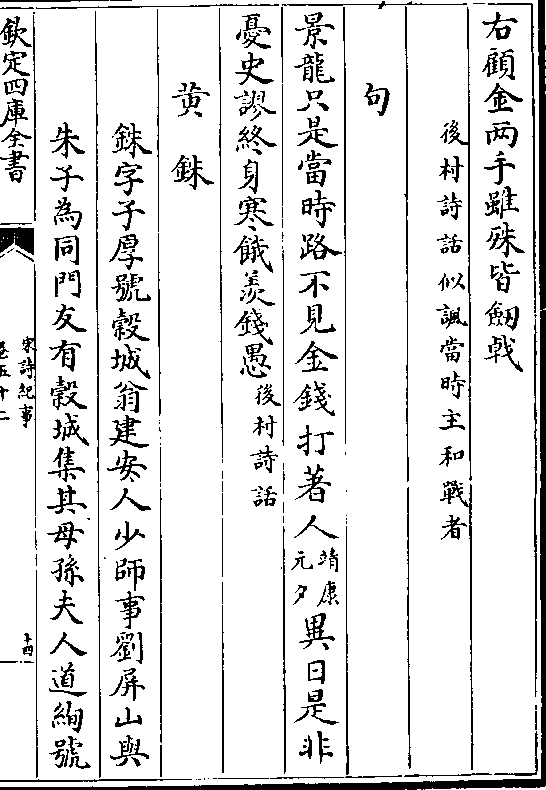 右顧金两手雖殊皆劒戟
後村詩話似諷當時主和戰者
句
景龍只是當時路不見金錢打著人靖康元夕異日是非
憂史謬終身寒餓羨錢愚後村詩話
黄銖
銖字子厚號穀城翁建安人少師事劉屏山與
朱子為同門友有穀城集其母孫夫人道絢號
欽定四庫全書
宋詩紀事
卷五十二
十四